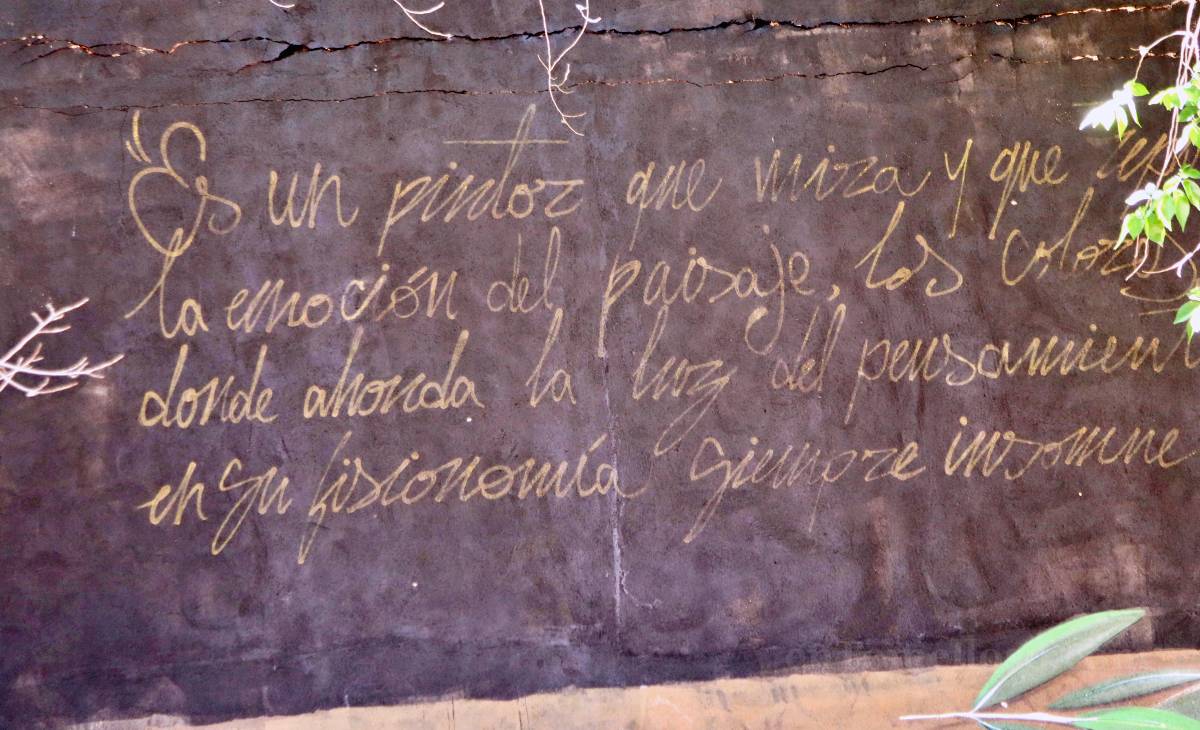 "Es un pintor que mira y que
la emoción del paisaje, los colores
donde ahonda la luz del pensamient
en su fisionomía siempre insomne